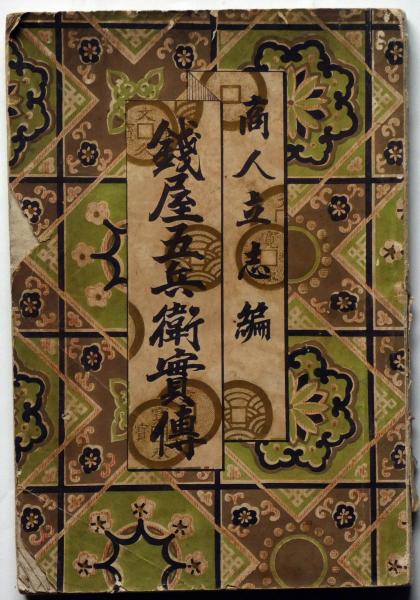 商人立志編
錢屋五兵衛實傳